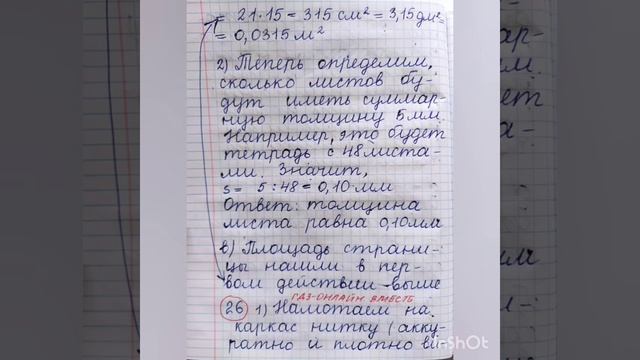 = 21·15 = 315 см² = 3,15 дм²
= 0,0315 м²
2) Теперь определим,
сколько листов бу-
дут иметь суммар-
ную толщину 5 мм.
Например, это будет
тетрадь с 48 листа-
ми. Значит,
s = 5 : 48 = 0,10 мм
Ответ: толщина
листа равна 0,10 мм
в) Площадь страни-
цы нашли в пер-
вом действии выше
ГДЗ-ОНЛАЙН ВМЕСТЕ
26 1) Намотаем на
каркас нитку (акку-
ратно и плотно ви